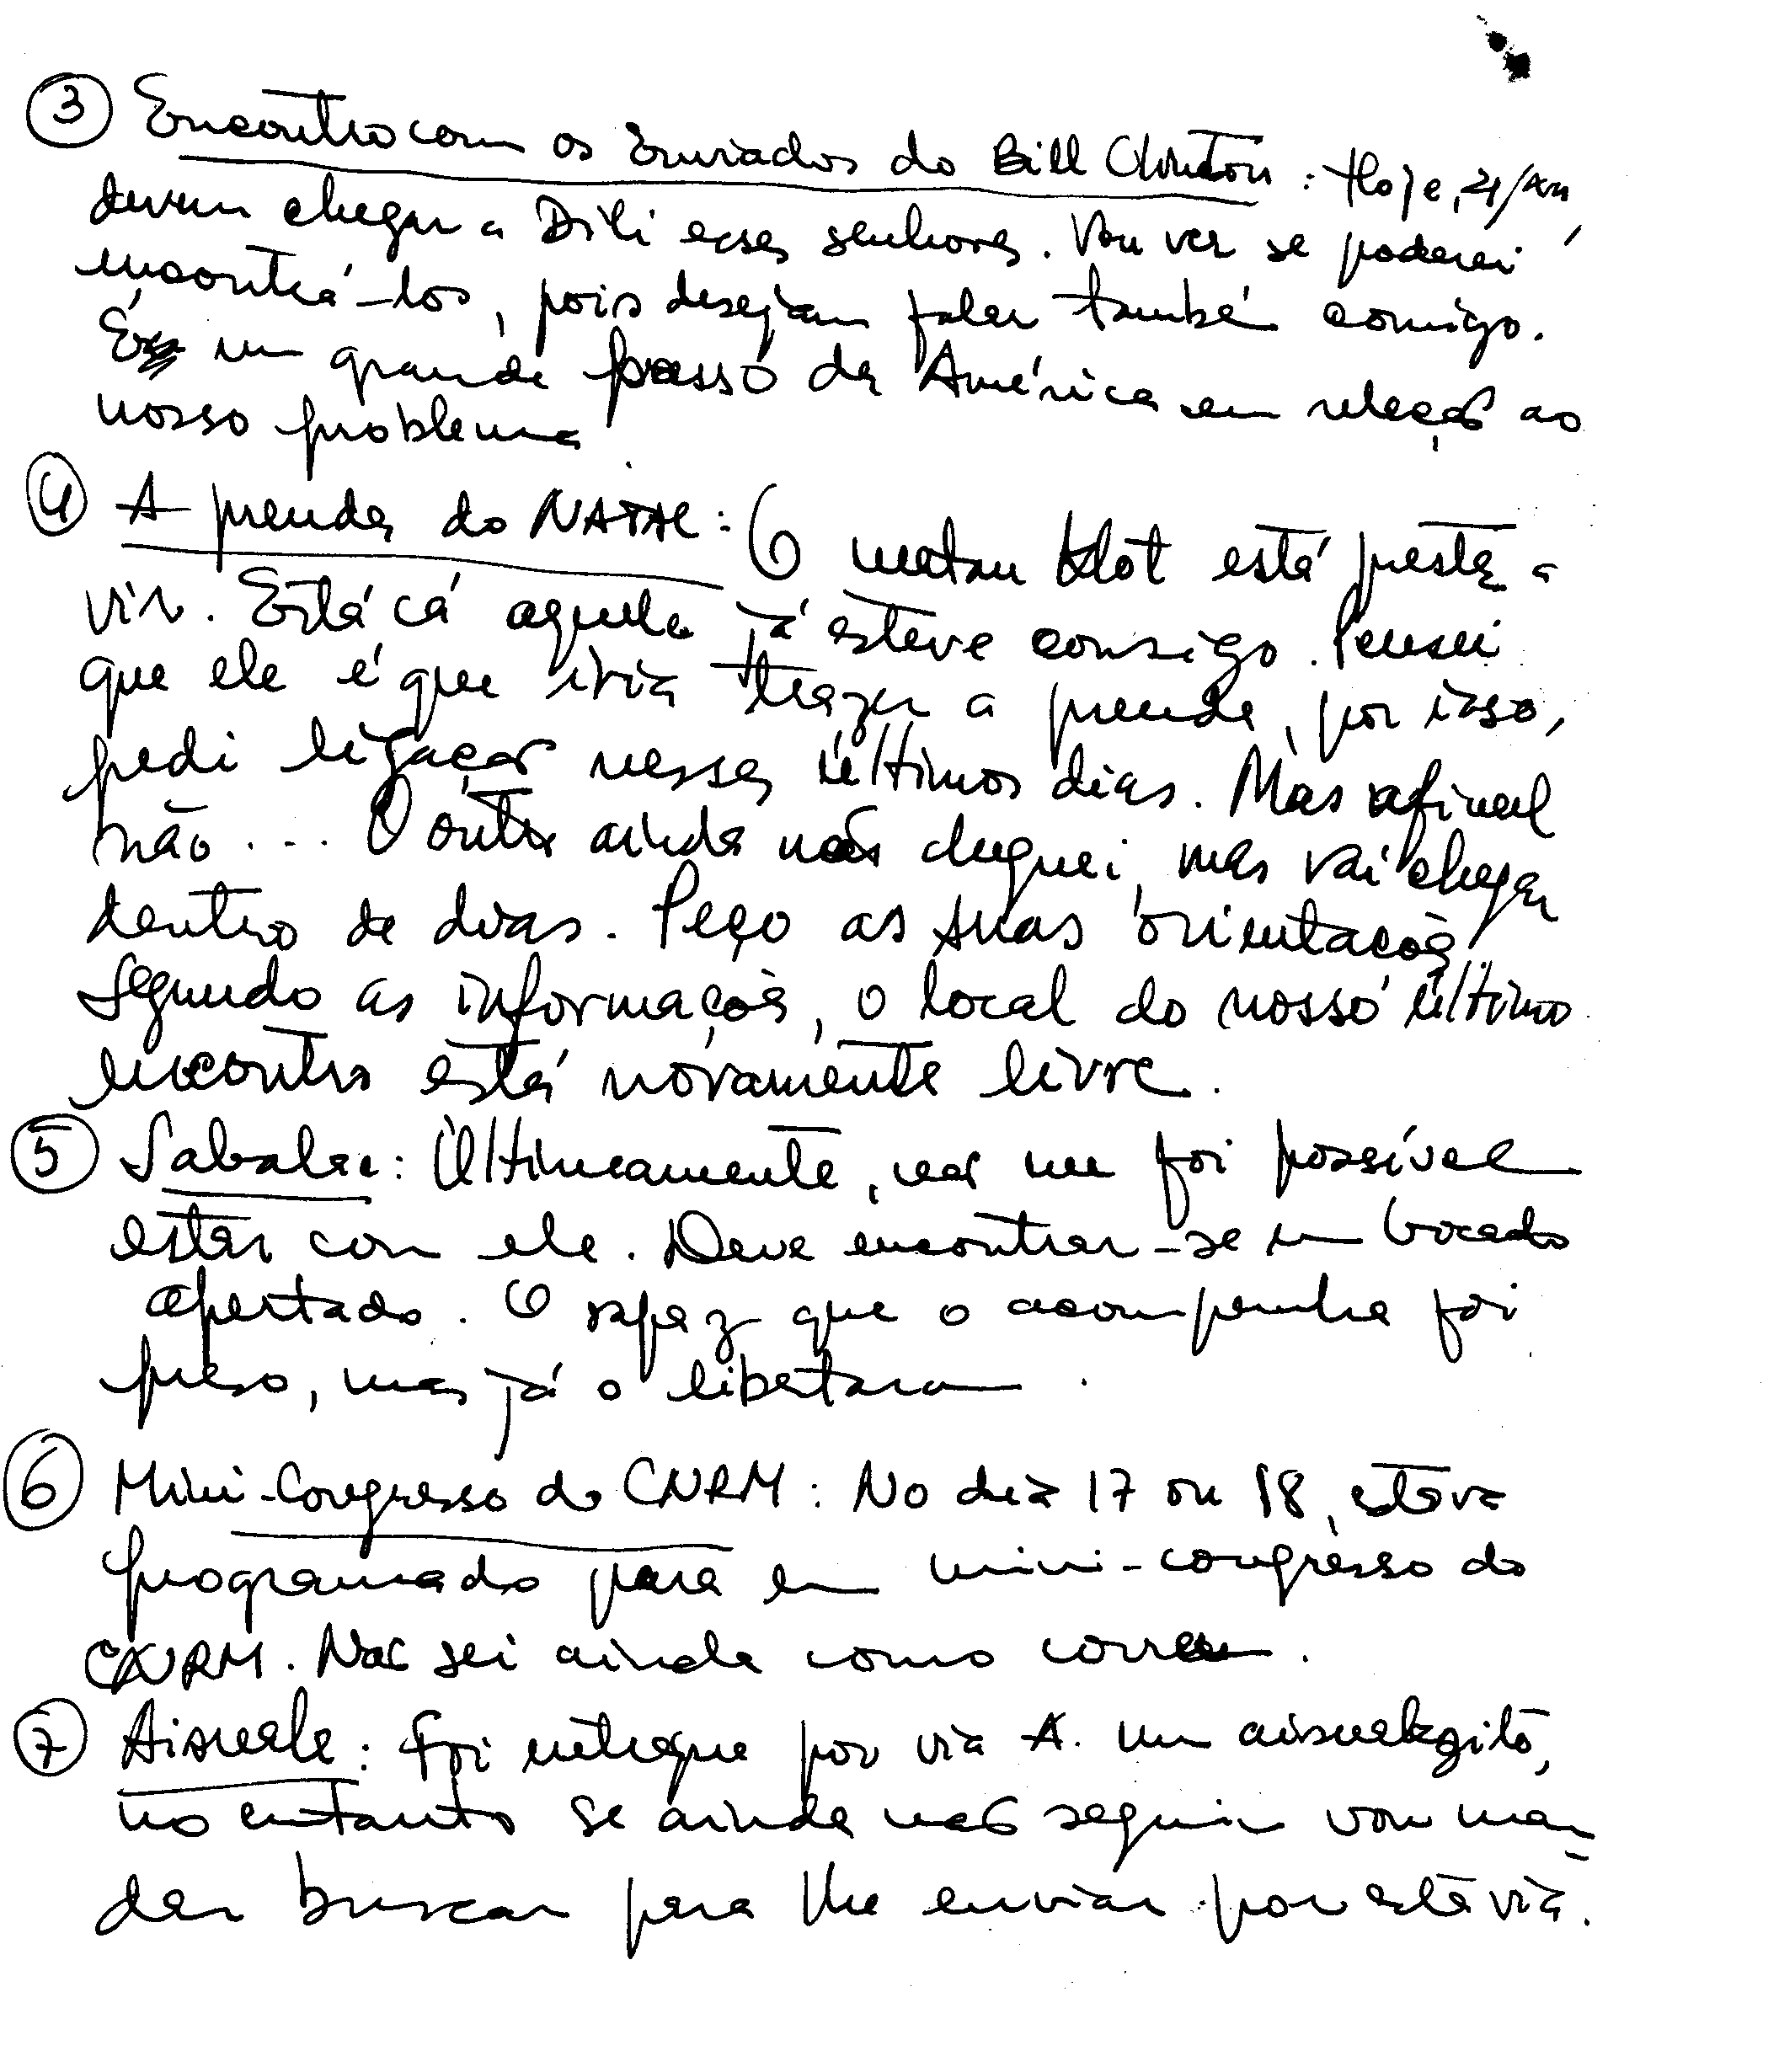 ③ Encontro com os Enviados do Bill Clinton: Hoje, 21/XII,
devem chegar a Dili esses senhores. Vou ver se poderei
encontrá-los, pois desejam falar també comigo.
É um grande passo da América em relação ao
nosso problema.
④ A prenda do NATAL: O matan klot está prestes a
vir. Está cá aquele já esteve consigo. Pensei
que ele é que iria trazer a prenda, por isso,
pedi ligação nesses últimos dias. Mas afinal
não... O outro ainda não cheguei, mas vai chegar
dentro de dias. Peço as suas orientações
Segundo as informações, o local do nosso último
encontro está novamente livre.
⑤ Sabalae: Ùltimamente, não me foi possível
estar com ele. Deve encontrar-se um bocado
apertado. O rapaz que o acompanha foi
preso, mas já o libertaram.
⑥ Mini-Congresso do CNRM: No dia 17 ou 18, estava
programado para um mini-congresso do
CNRM. Não sei ainda como correu.
⑦ Aisuale: Foi entregue por via A. um
no entanto se ainda não seguir vou man-
dar buscar para lhe enviar por esta via.